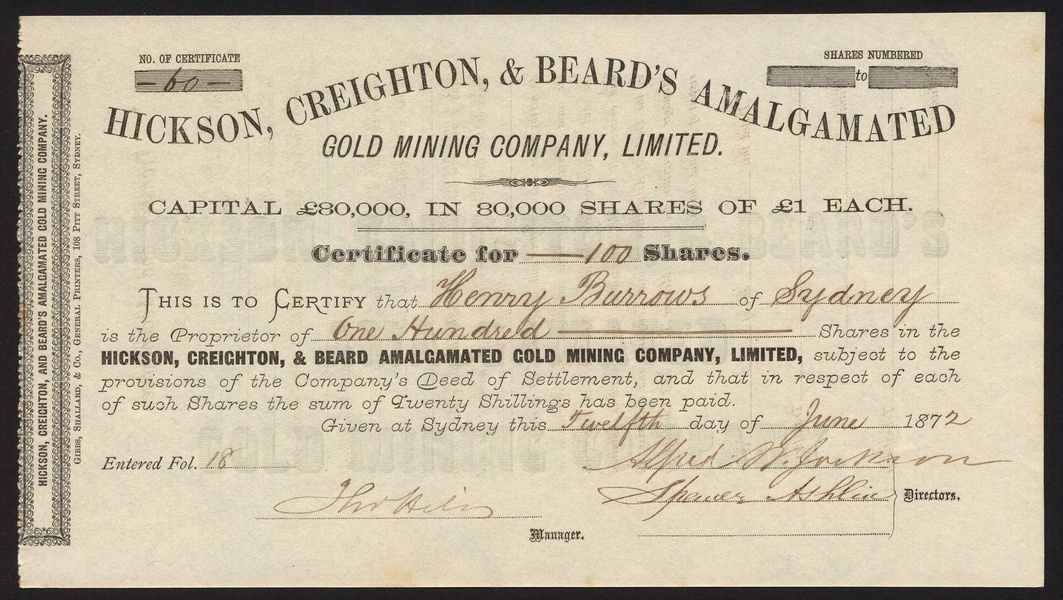 NO. OF CERTIFICATE
— 60 —
SHARES NUMBERED
to
HICKSON, CREIGHTON, & BEARD'S AMALGAMATED
GOLD MINING COMPANY, LIMITED.
CAPITAL £80,000, IN 80,000 SHARES OF £1 EACH.
Certificate for — 100 Shares.
THIS IS TO CERTIFY that Henry Burrows of Sydney
is the Proprietor of One Hundred — Shares in the
HICKSON, CREIGHTON, & BEARD AMALGAMATED GOLD MINING COMPANY, LIMITED, subject to the
provisions of the Company's Deed of Settlement, and that in respect of each
of such Shares the sum of Twenty Shillings has been paid.
Given at Sydney this Twelfth day of June 1872
Entered Fol. 18
Alfred Jackson
Spencer
Directors.
Manager.
HICKSON, CREIGHTON, AND BEARD'S AMALGAMATED GOLD MINING COMPANY.
GIBBS, SHALLARD, & CO., GENERAL PRINTERS, 108 PITT STREET, SYDNEY.